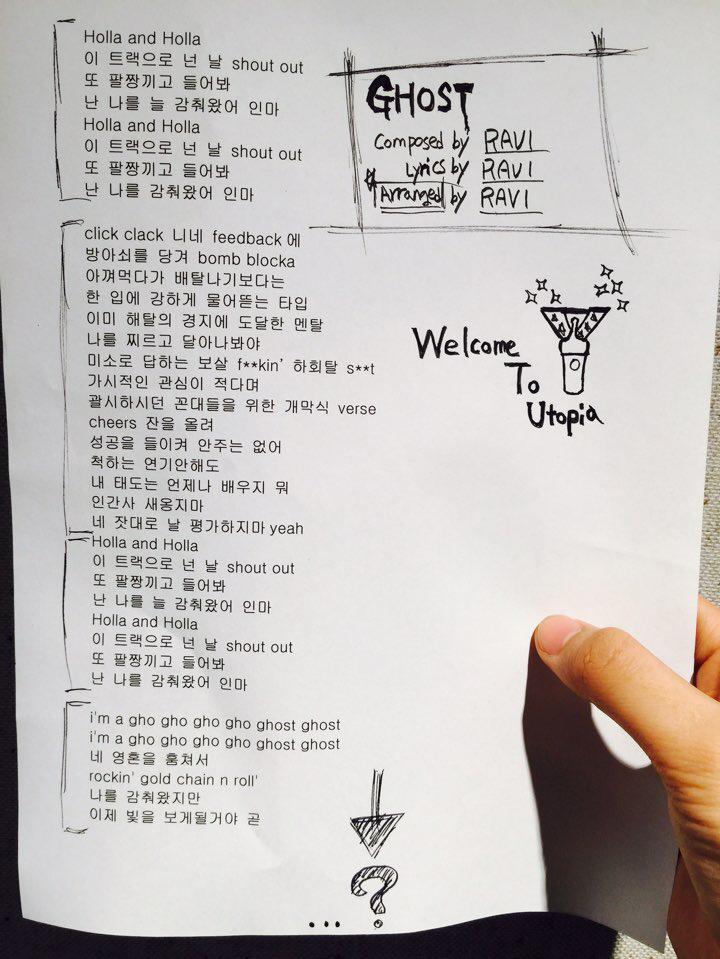 Holla and Holla
이 트랙으로 넌 날 shout out
또 팔짱끼고 들어봐
난 나를 늘 감춰왔어 인마
Holla and Holla
이 트랙으로 넌 날 shout out
또 팔짱끼고 들어봐
난 나를 감춰왔어 인마
click clack 니네 feedback 에
방아쇠를 당겨 bomb blocka
아껴먹다가 배탈나기보다는
한 입에 강하게 물어뜯는 타입
이미 해탈의 경지에 도달한 멘탈
나를 찌르고 달아나봐야
미소로 답하는 보살 f**kin' 하회탈 s**t
가시적인 관심이 적다며
괄시하시던 꼰대들을 위한 개막식 verse
cheers 잔을 올려
성공을 들이켜 안주는 없어
척하는 연기안해도
내 태도는 언제나 배우지 뭐
인간사 새옹지마
네 잣대로 날 평가하지마 yeah
Holla and Holla
이 트랙으로 넌 날 shout out
또 팔짱끼고 들어봐
난 나를 늘 감춰왔어 인마
Holla and Holla
이 트랙으로 넌 날 shout out
또 팔짱끼고 들어봐
난 나를 감춰왔어 인마
i'm a gho gho gho gho ghost ghost
i'm a gho gho gho gho ghost ghost
네 영혼을 훔쳐서
rockin' gold chain n roll'
나를 감춰왔지만
이제 빛을 보게될거야 곧
GHOST
Composed by RAVI
Lyrics by RAVI
Arranged by RAVI
Welcome
To
Utopia
... ?